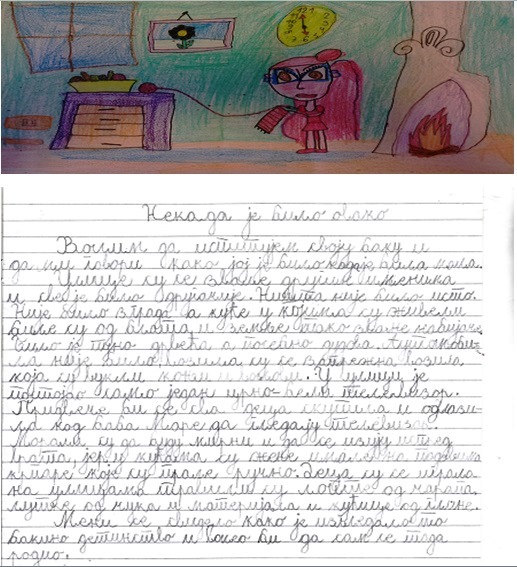 Некада је било овако
Волим да испитујем своју баку и
да ми говори како јој је било кад је била мала.
Улице су се звале другим именима
и све је било другачије. Ништа није било исто.
Није било зграда а куће у којима су живели
биле су од блата и земље тако зване набијаче.
Било је пуно дрвећа а посебно дудова. Аутомоби-
ла није било, возила су се запрежна возила
која су вукли коњи и волови. У улици је
постојао само један црно-бели телевизор.
Предвече би се сва деца скупила и одлази-
ла код баба Маре да гледају телевизор.
Морали су да буду мирни и да се изују испред
врата, јер у кућама су жене имале на подовима
крпаре које су прале ручно. Деца су се играла
на улицама правили су лопте од чарапа,
лутке од чика и материјала и кућице од глине.
Мени се свидело како је изгледало то
бакино детињство и волео би да сам се тада
родио.